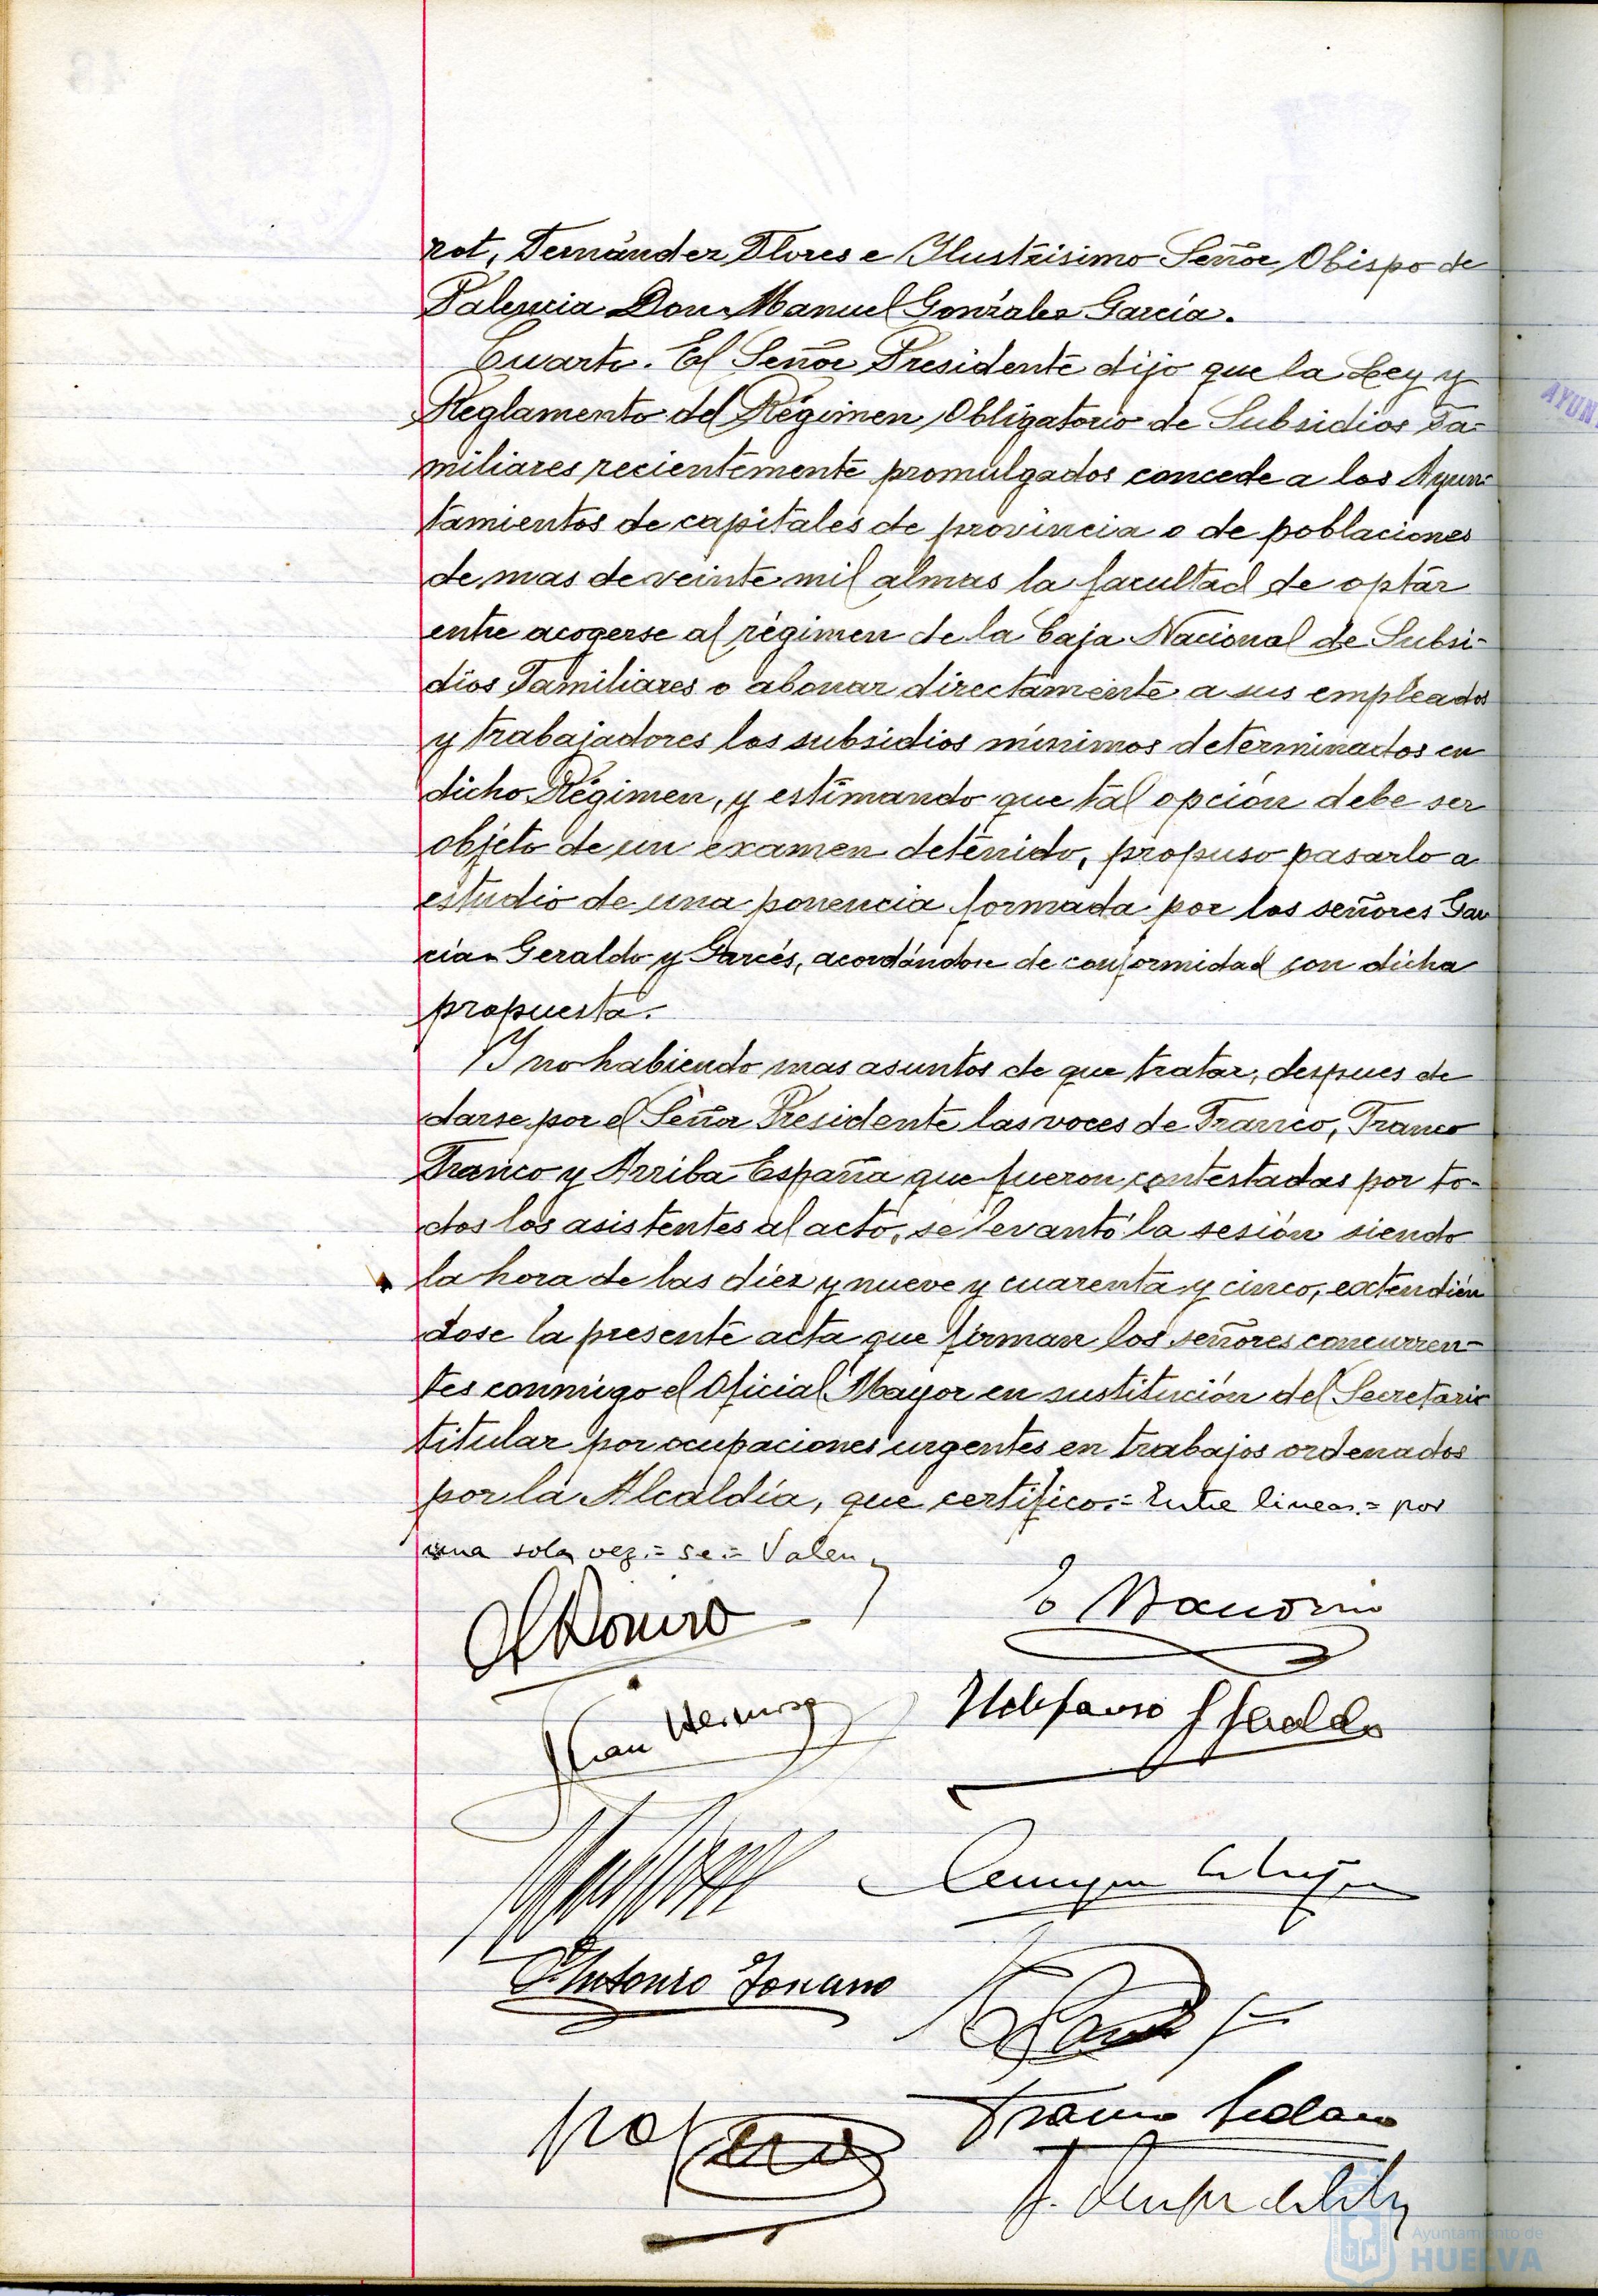 rot, Fernández Flores e Ilustrísimo Señor Obispo de
Palencia Don Manuel González García.
Cuarto. El Señor Presidente dijo que la Ley y
Reglamento del Régimen Obligatorio de Subsidios Fa-
miliares recientemente promulgados concede a los Ayun-
tamientos de capitales de provincia o de poblaciones
de mas de veinte mil almas la facultad de optar
entre acogerse al régimen de la Caja Nacional de Subsi-
dios Familiares o abonar directamente a sus empleados
y trabajadores los subsidios mínimos determinados en
dicho Régimen, y estimando que tal opción debe ser
objeto de un examen detenido, propuso pasarlo a
estudio de una ponencia formada por los señores Gar
cía Geraldo y Garcés, acordándose de conformidad con dicha
propuesta.
Y no habiendo mas asuntos de que tratar, despues de
darse por el Señor Presidente las voces de Franco, Franco
Franco y Arriba España que fueron contestadas por to-
dos los asistentes al acto, se levantó la sesión siendo
la hora de las diez y nueve y cuarenta y cinco, extendién
dose la presente acta que firman los señores concurren-
tes conmigo el Oficial Mayor en sustitución del Secretario
titular por ocupaciones urgentes en trabajos ordenados
por la Alcaldía, que certifico.= Entre lineas.= por
una sola vez.= se.= Valen
Antonio
AYUN
Ayuntamiento de
HUELVA